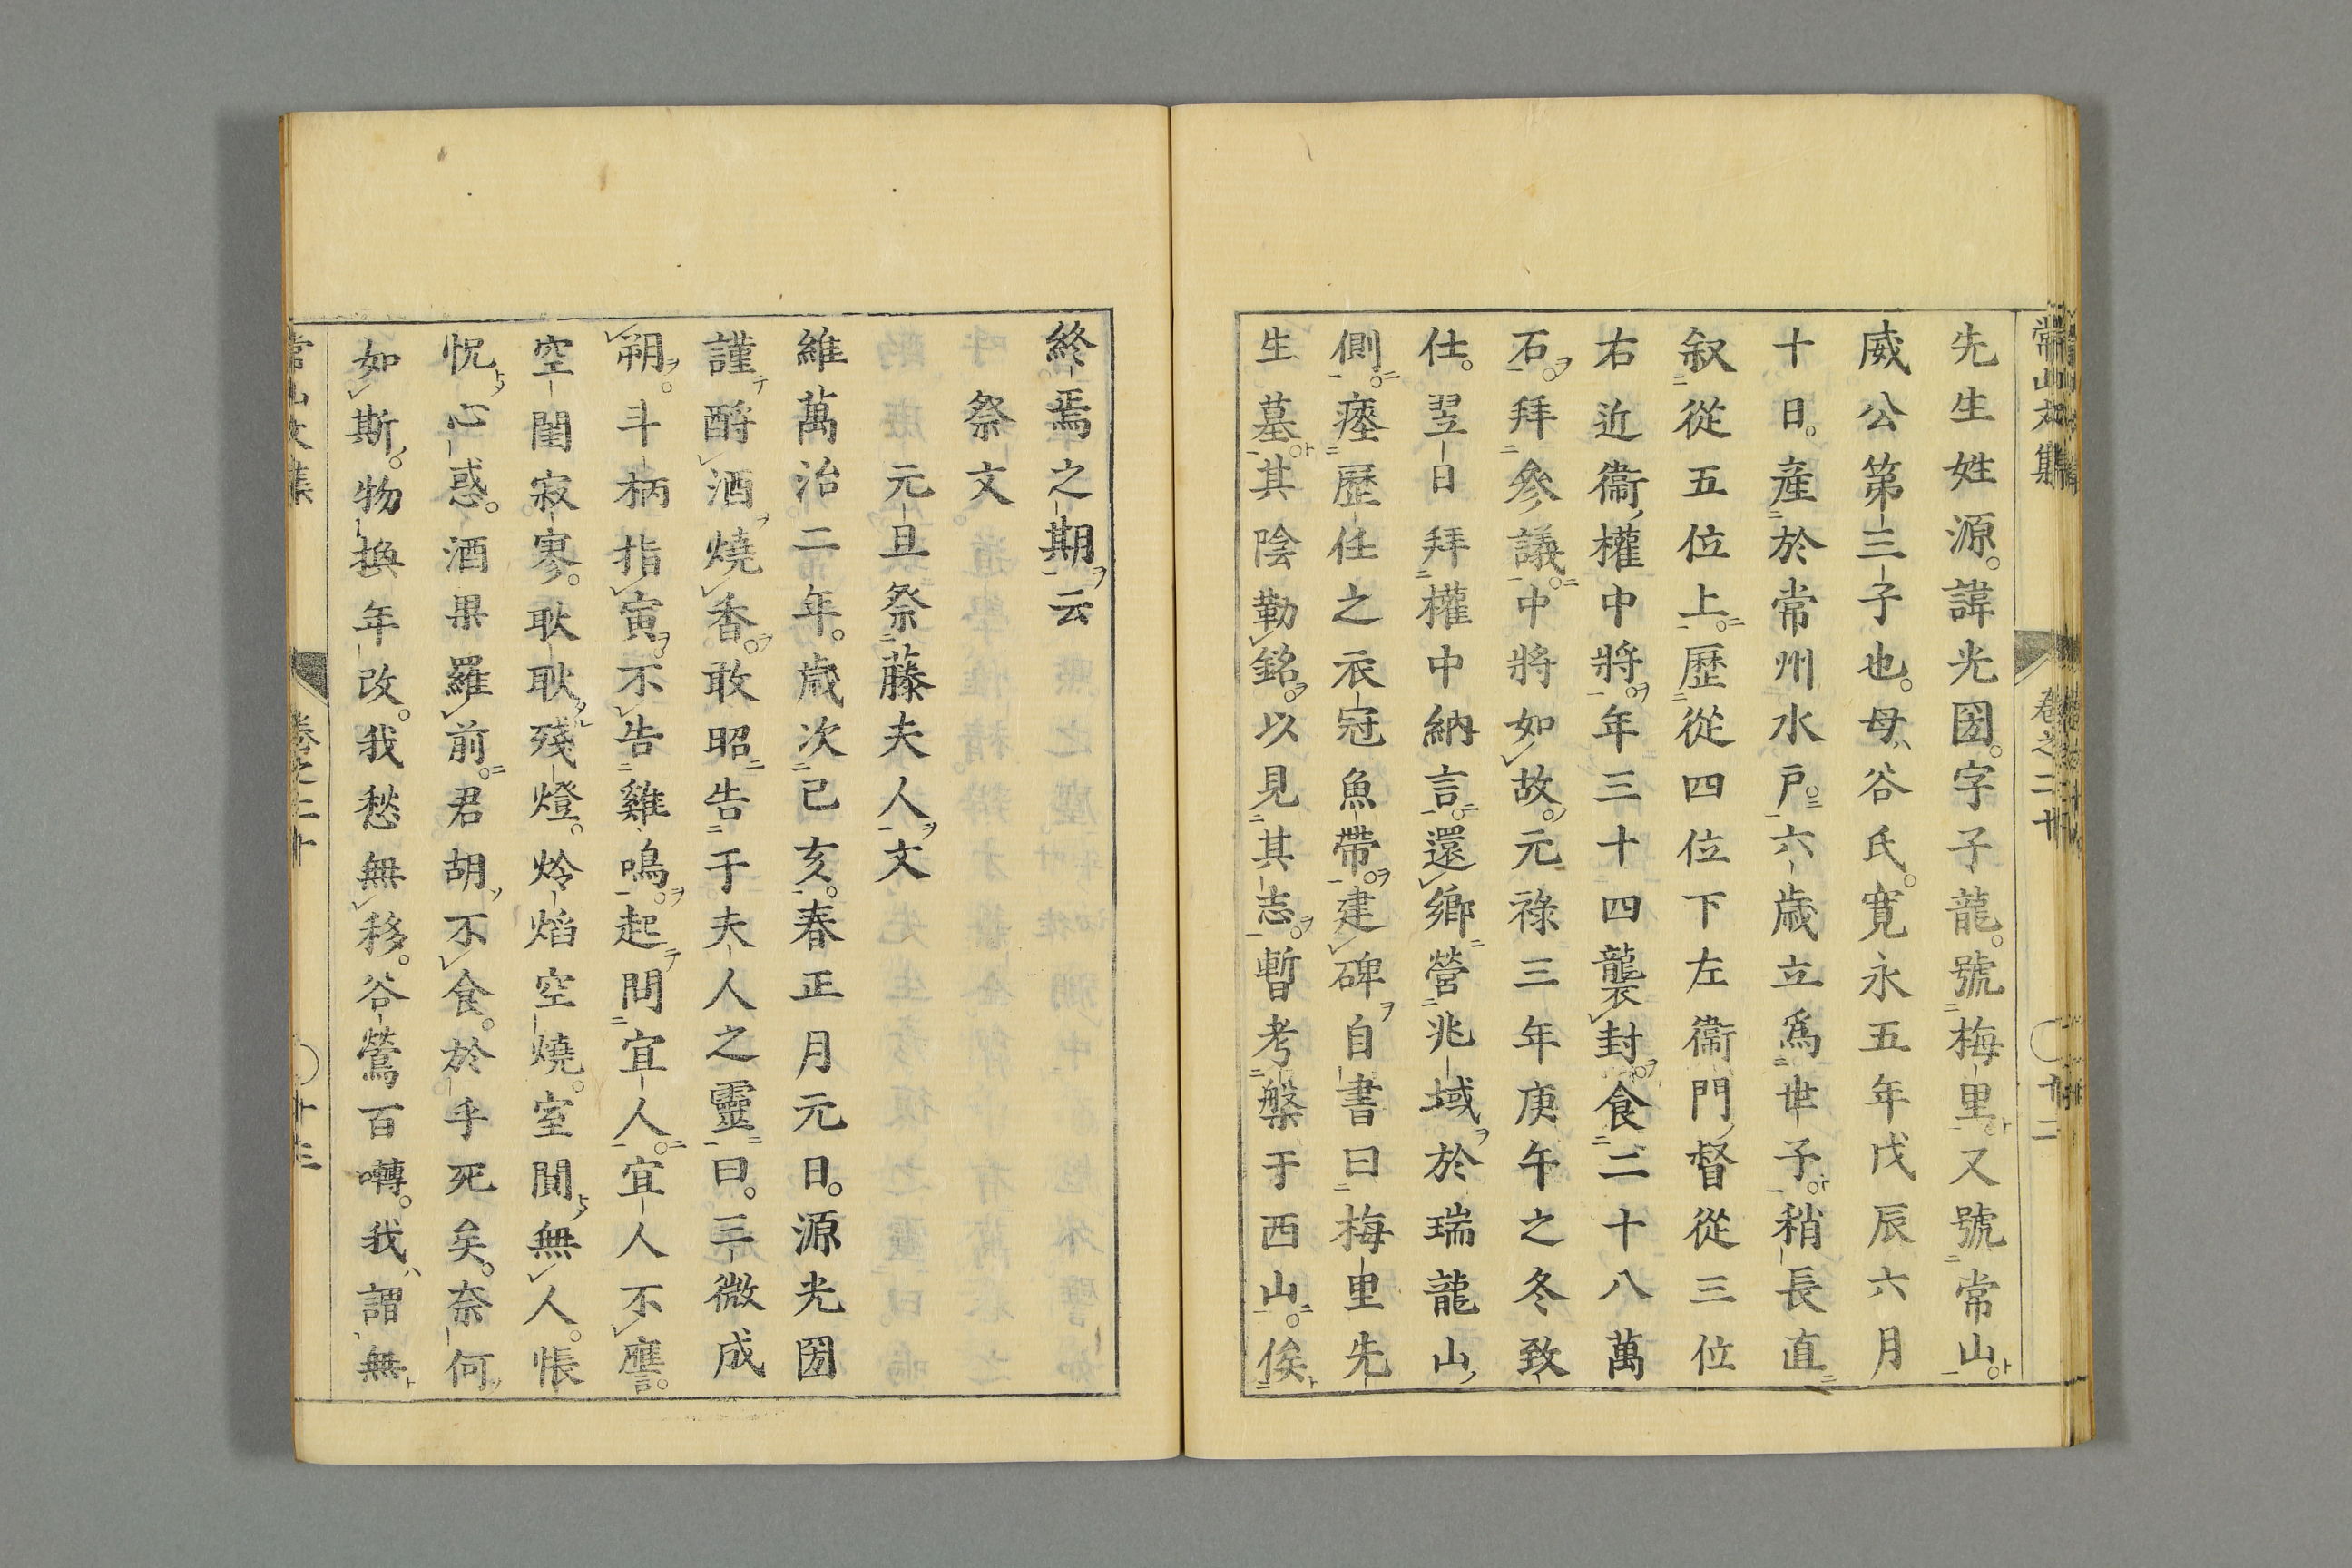 常山文集 卷之二十 十二
先生姓源。諱光圀。字子龍。號梅里又號常山
威公第三子也。母谷氏。寛永五年戊辰六月
十日。產於常州水戶。六歲立爲世子。稍長直
叙從五位上。歷從四位下左衞門督從三位
右近衞權中將。年三十四襲封。食二十八萬
石。拜參議。中將如故。元祿三年庚午之冬致
仕。翌日拜權中納言。還鄉營兆域於瑞龍山
側。瘞歷任之衣冠魚帶。建碑自書曰梅里先
生墓。其陰勒銘。以見其志。暫考槃于西山。俟
終焉之期云
祭文
元旦祭藤夫人文
維萬治二年。歲次己亥。春正月元日。源光圀
謹酹酒燒香。敢昭告于夫人之靈曰。三微成
朔。斗柄指寅。不告雞鳴。起問宜人。宜人不譍。
空閨寂寥。耿耿殘燈。炩焰空燒。室閴無人。悵
怳心惑。酒果羅前。君胡不食。於乎死矣。奈何
如斯。物換年改。我愁無移。谷鶯百囀。我謂無
常山文集 卷之二十 十三